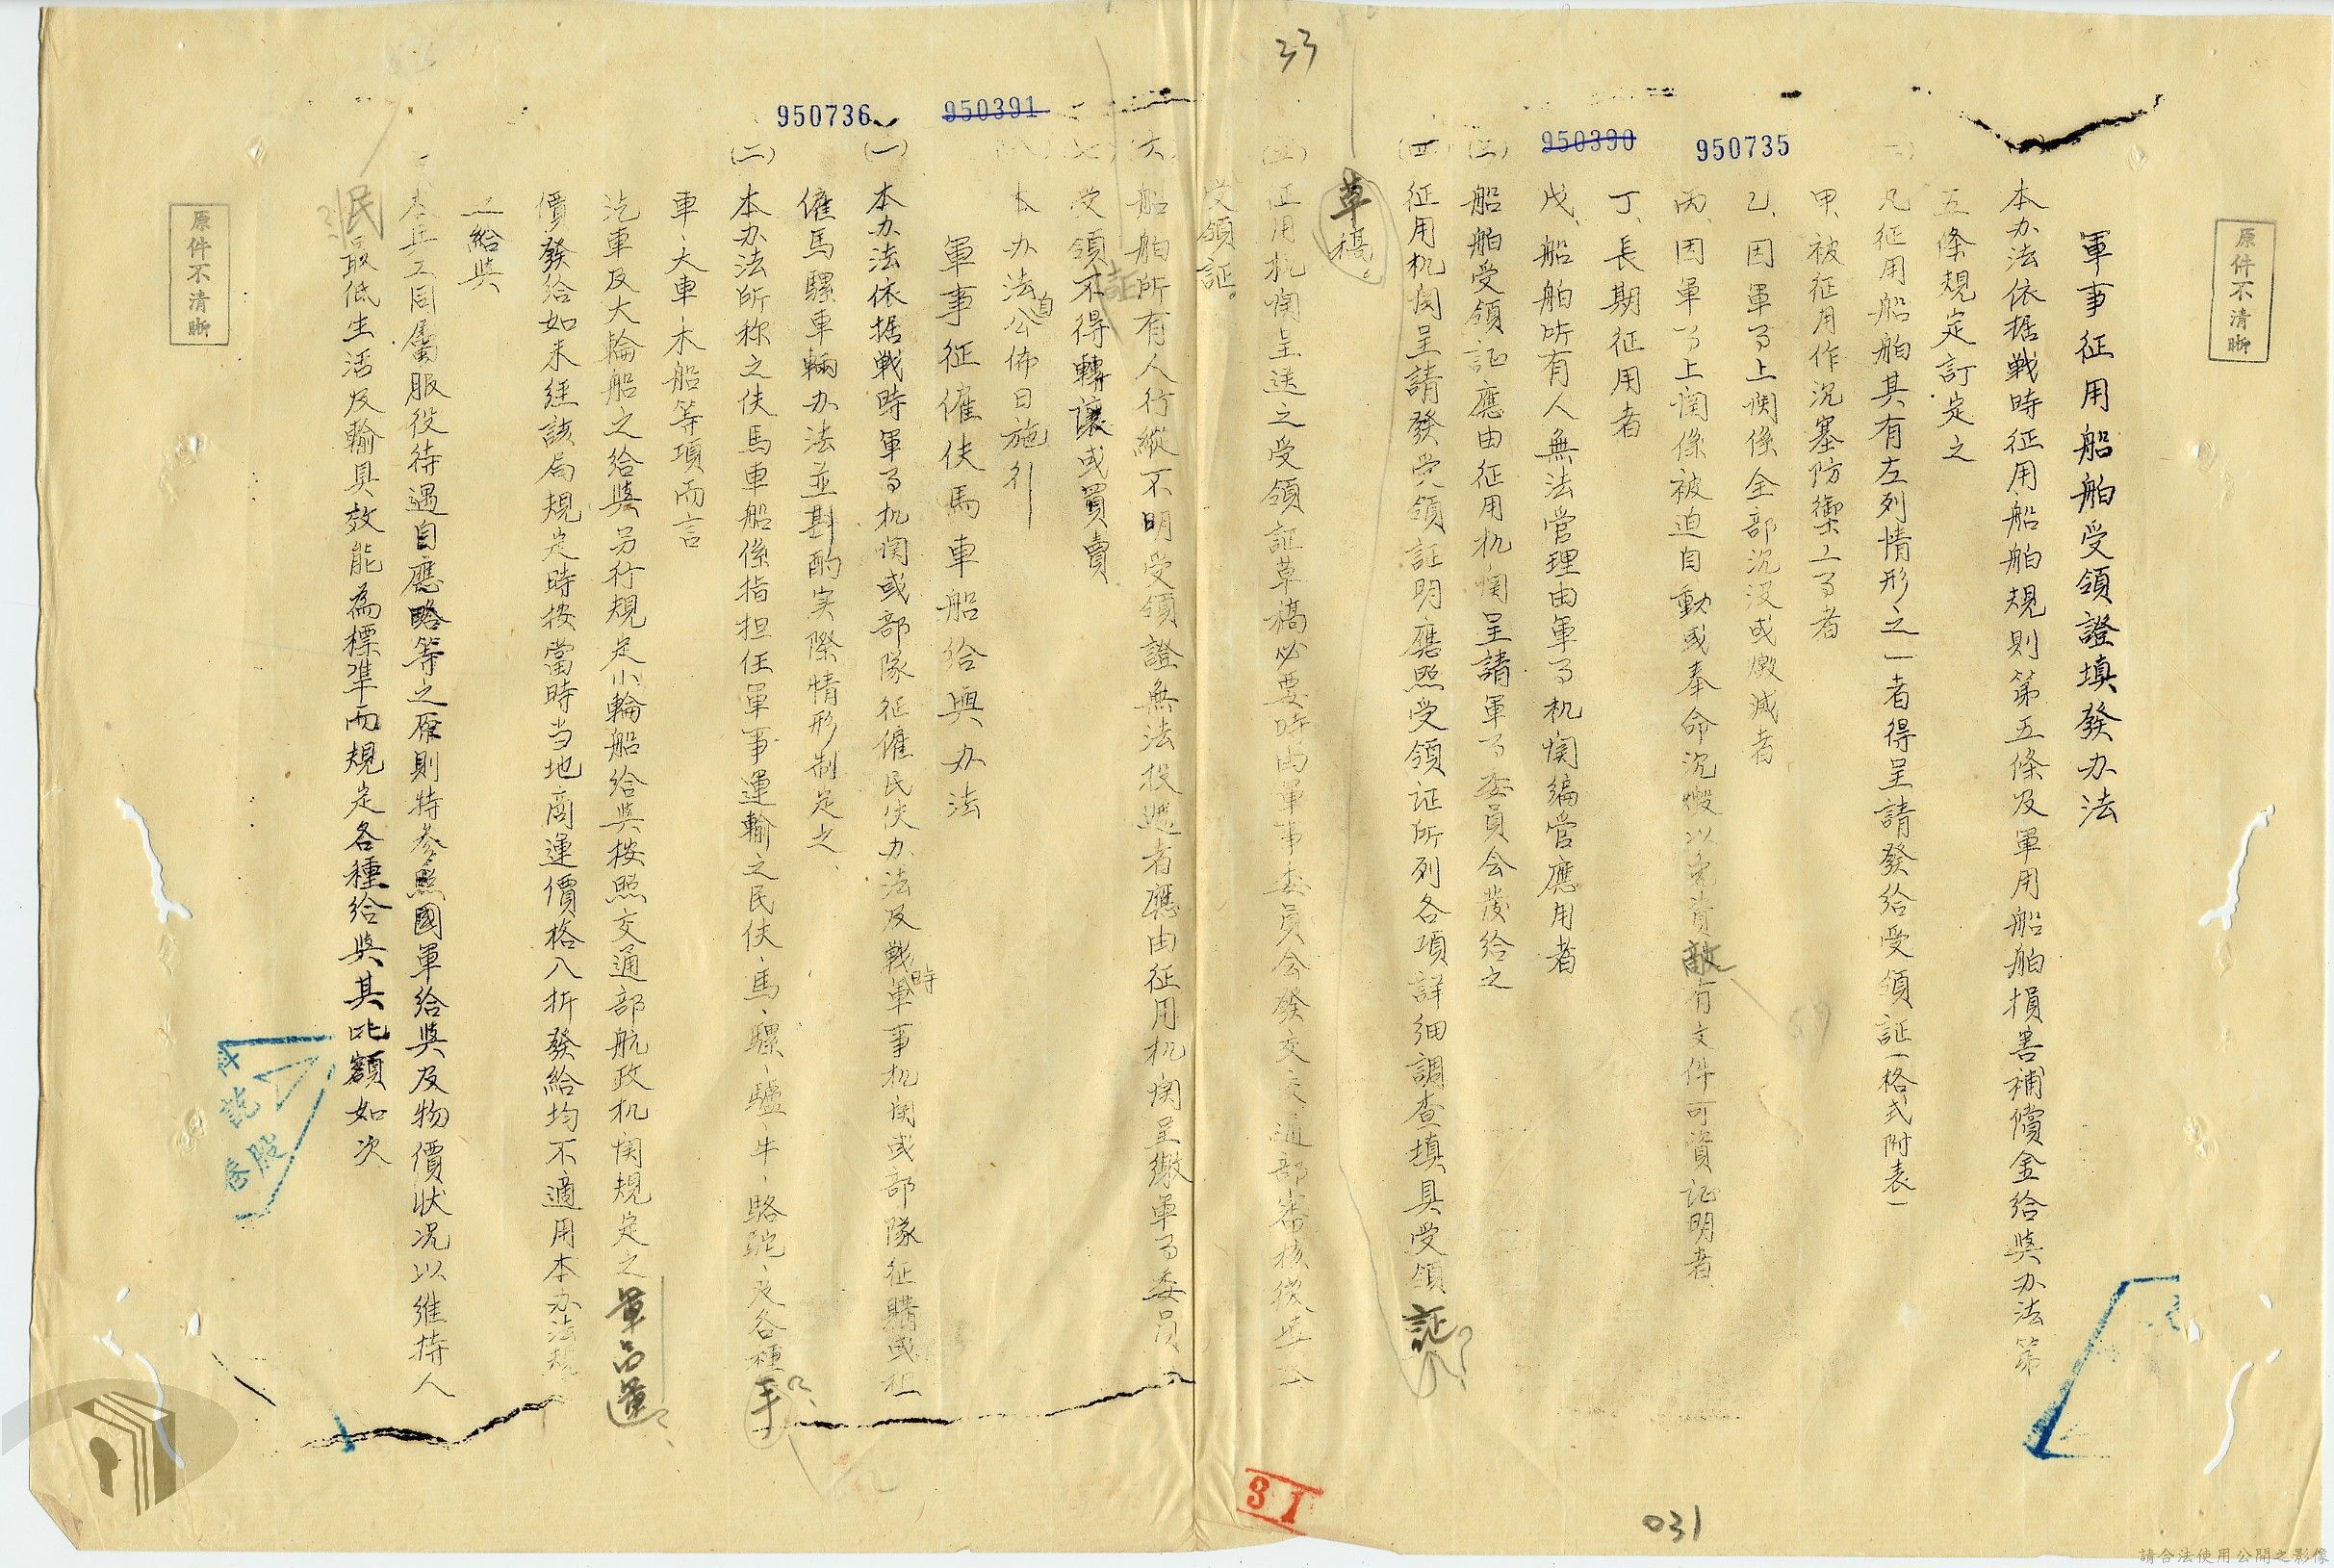 33
原件不清晰
軍事征用船舶受領證填發办法
本办法依据戰時征用船舶規則第五條及軍用船舶損害補償金給與办法第
五條規定訂定之
凡征用船舶其有左列情形之一者得呈請發給受領証(格式附表)
甲、被征用作沉塞防禦工事者
乙、因軍事上関係全部沉没或燬滅者
950735
丙、因軍事上関係被迫自動或奉命沉燬以免資敵有文件可資証明者
丁、長期征用者
950390
戊、船舶所有人無法管理由軍事机関編管應用者
(三)船舶受領証應由征用机関呈請軍事委員会發给之
(四)征用机関呈請發受領証明應照受領証所列各項詳细調查填具受領証
草稿。
(五)征用机関呈送之受領証草稿必要時由軍事委員会發交交通部審核後填
受領証。
(六)船舶所有人行縱不明受領證無法投遞者應由征用机関呈繳軍事委員
(七)受領証不得轉讓或買賣
本办法自公佈日施行
950391
軍事征僱伕馬車船给與办法
950736
(一)本办法依据戰時軍事机関或部隊征僱民伕办法及戰時軍事机関或部隊征購或租
僱馬騾車輛办法並斟酌实際情形制定之、
(二)本办法所称之伕馬車船係指担任軍事運輸之民伕、馬、騾、驢、牛、駱駝、及各種手
車、大車、木船等項而言
汽車及大輪船之给與另行規定小輪船给與按照交通部航政机関規定之軍品運
價發给如未经該局規定時按當時当地商運價格八折發給均不適用本办法規
之給與
本兵工同屬服役待遇自應略等之原則特參照國軍给與及物價狀况以維持人
民最低生活及輸具效能為標準而規定各種给與其此額如次
原件不清晰
31
031
請合法使用公開之影像